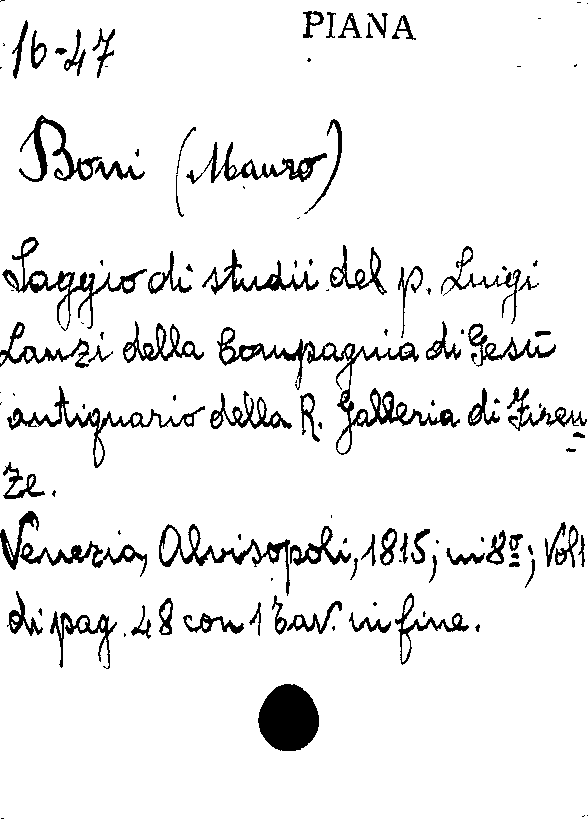 PIANA
16-47
Boni (Mauro)
Saggio di studii del p. Luigi
Lanzi della Compagnia di Gesù
antiquario della R. Galleria di Firen=
ze.
Venezia, Alvisopoli, 1815; in 8º; Vol 1
di pag. 48 con 1 tav. in fine.